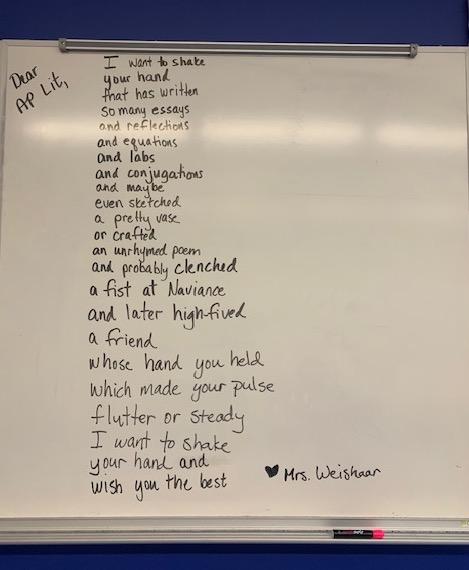 Dear
AP Lit,
I want to shake
your hand
that has written
so many essays
and reflections
and equations
and labs
and conjugations
and maybe
even sketched
a pretty vase
or crafted
an unrhymed poem
and probably clenched
a fist at Naviance
and later high-fived
a friend
whose hand you held
which made your pulse
flutter or steady
I want to shake
your hand and
wish you the best
♥ Mrs. Weishaar